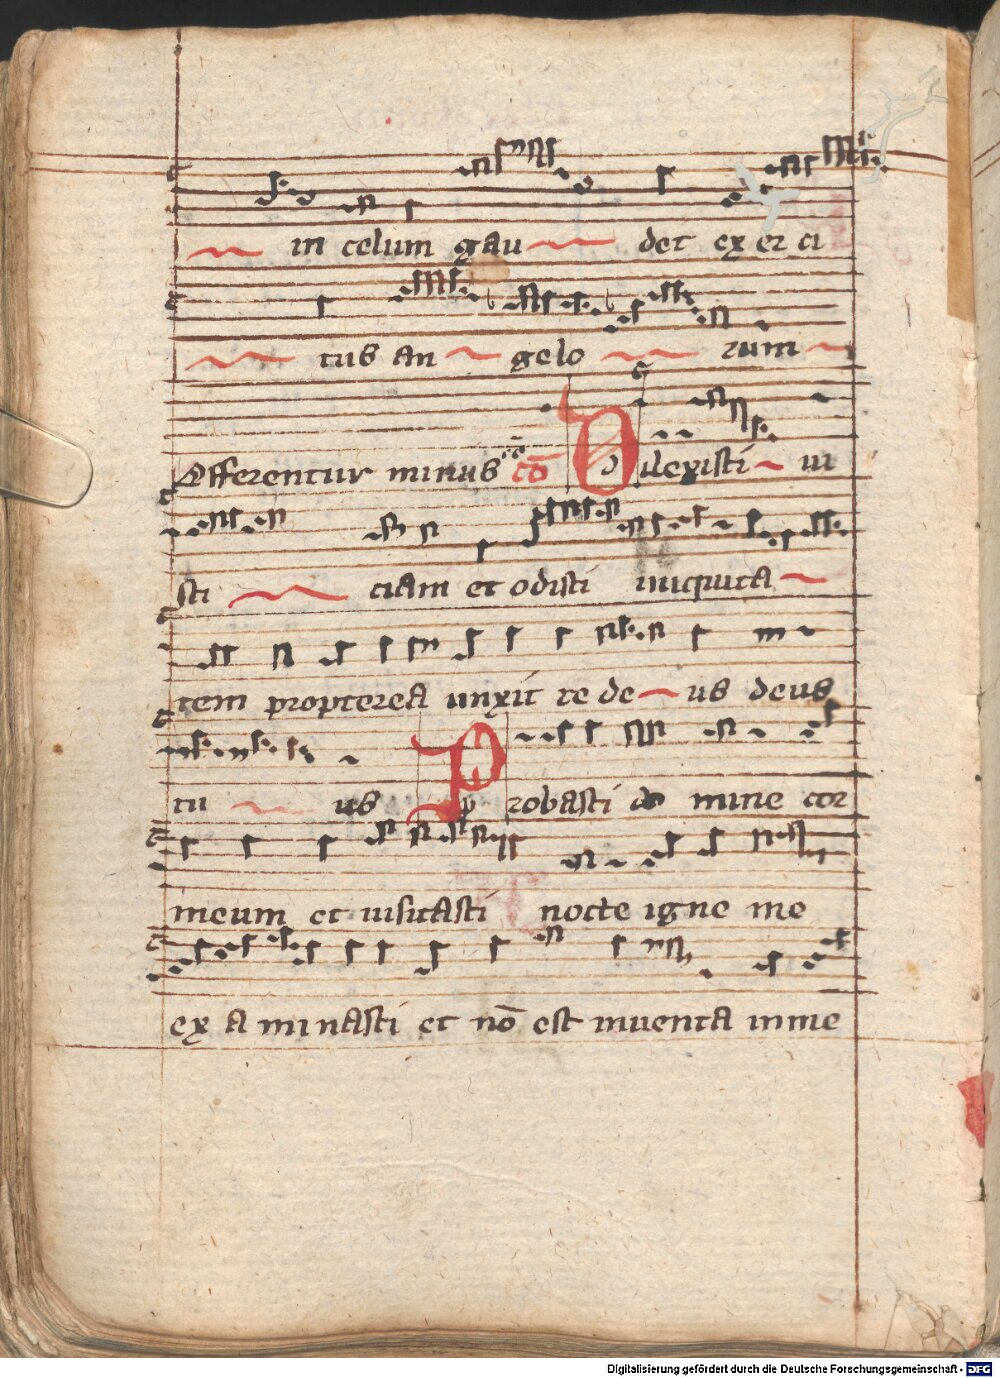 in celum gau det ex er ci
tus an gelo rum
Offerentur minus cō Dilexisti iu
sti ciam et odisti iniquita
tem propterea unxit te de us deus
tu us Probasti do mine cor
meum et uisitasti nocte igne me
ex a minasti et nō est inuenta in me
Digitalisierung gefördert durch die Deutsche Forschungsgemeinschaft - DFG